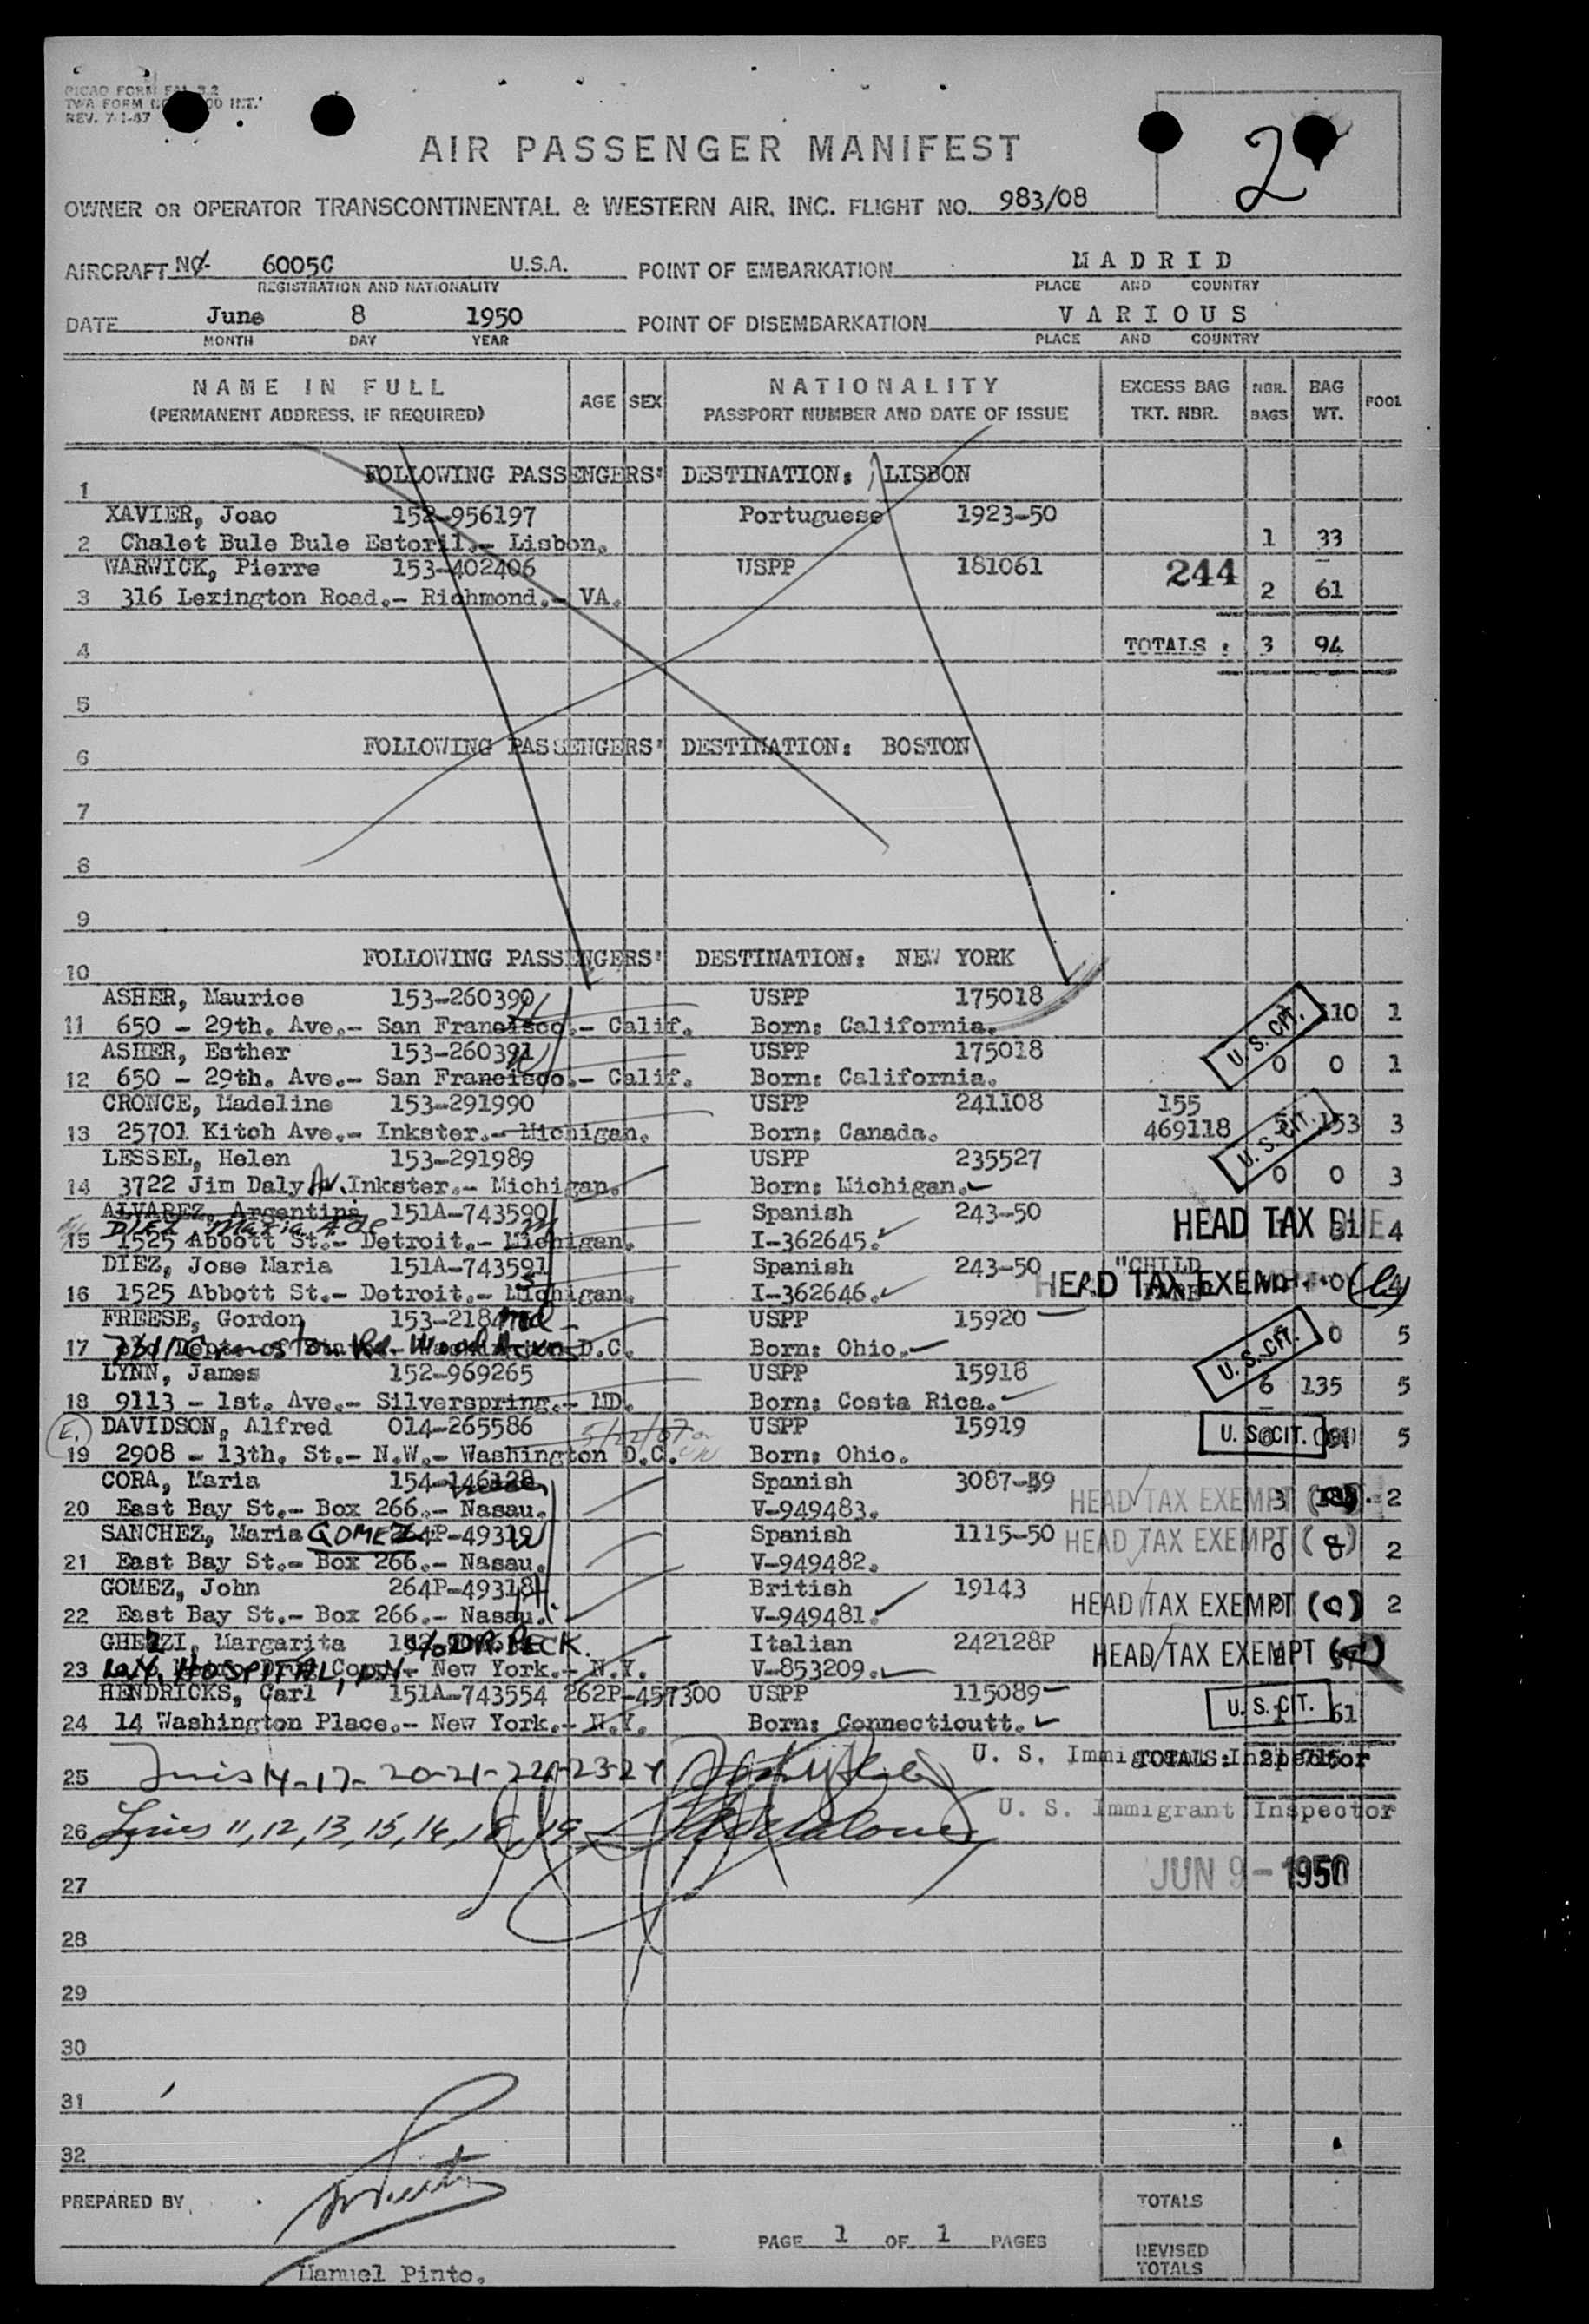 PICAO FORM FAL 3.2
TWA FORM NO. 00 INT.
REV. 7-1-47
2
AIR PASSENGER MANIFEST
OWNER OR OPERATOR TRANSCONTINENTAL & WESTERN AIR, INC. FLIGHT NO. 983/08
AIRCRAFT NC- 6005C U.S.A. POINT OF EMBARKATION MADRID
REGISTRATION AND NATIONALITY PLACE AND COUNTRY
DATE June 8 1950 POINT OF DISEMBARKATION VARIOUS
MONTH DAY YEAR PLACE AND COUNTRY
NAME IN FULL AGE SEX NATIONALITY EXCESS BAG NBR. BAG POOL
(PERMANENT ADDRESS, IF REQUIRED) PASSPORT NUMBER AND DATE OF ISSUE TKT. NBR. BAGS WT.
1 FOLLOWING PASSENGERS' DESTINATION: LISBON
XAVIER, Joao 152-956197 Portuguese 1923-50
2 Chalet Bule Bule Estoril.- Lisbon. 1 33
WARWICK, Pierre 153-402406 USPP 181061 244
3 316 Lexington Road.- Richmond.- VA. 2 61
4 TOTALS : 3 94
5
6 FOLLOWING PASSENGERS' DESTINATION: BOSTON
7
8
9
10 FOLLOWING PASSENGERS' DESTINATION: NEW YORK
ASHER, Maurice 153-260390 USPP 175018
11 650 - 29th. Ave.- San Francisco.- Calif. Born: California. U. S. CIT. 110 1
ASHER, Esther 153-260391 USPP 175018
12 650 - 29th. Ave.- San Francisco.- Calif. Born: California. 0 0 1
CRONCE, Madeline 153-291990 USPP 241108 155
13 25701 Kitch Ave.- Inkster.- Michigan. Born: Canada. 469118 U. S. CIT. 153 3
LESSEL, Helen 153-291989 USPP 235527
14 3722 Jim Daly Av. Inkster.- Michigan. Born: Michigan. 0 0 3
ALVAREZ, Argentina 151A-743590 Spanish 243-50 HEAD TAX DUE
DIEZ Maria
15 1525 Abbott St.- Detroit.- Michigan. I-362645. 4
DIEZ, Jose Maria 151A-743591 Spanish 243-50 "CHILD
16 1525 Abbott St.- Detroit.- Michigan. I-362646. HEAD TAX EXEMPT 4
FREESE, Gordon 153-2184 USPP 15920
17 D.C. Born: Ohio. U. S. CIT. 0 5
LYNN, James 152-969265 USPP 15918
18 9113 - 1st. Ave.- Silverspring.- MD. Born: Costa Rica. 6 135 5
E. DAVIDSON, Alfred 014-265586 5/22/07 USPP 15919
19 2908 - 13th. St.- N.W.- Washington D.C. Born: Ohio. U. S. CIT. 5
CORA, Maria 154-146128 Spanish 3087-49
20 East Bay St.- Box 266.- Nasau. V-949483. HEAD TAX EXEMPT 3 2
SANCHEZ, Maria GOMEZ 264P-49319 Spanish 1115-50 HEAD TAX EXEMPT
21 East Bay St.- Box 266.- Nasau. V-949482. 0 2
GOMEZ, John 264P-49318 British 19143
22 East Bay St.- Box 266.- Nasau. V-949481. HEAD TAX EXEMPT (0) 2
GHEZZI, Margarita c/o DR. PECK. Italian 242128P
23 N.Y. HOSPITAL, N.Y. New York.- N.Y. V-853209. HEAD TAX EXEMPT
HENDRICKS, Carl 151A-743554 262P-457300 USPP 115089
24 14 Washington Place.- New York.- N.Y. Born: Connecticutt. U. S. CIT. 61
25 Lines 14-17-20-21-22-23-24 U. S. Immigrant Inspector TOTALS:
26 Lines 11, 12, 13, 15, 16, 18, 19 U. S. Immigrant Inspector
27 JUN 9 - 1950
28
29
30
31
32
PREPARED BY TOTALS
PAGE 1 OF 1 PAGES
REVISED TOTALS
Manuel Pinto.